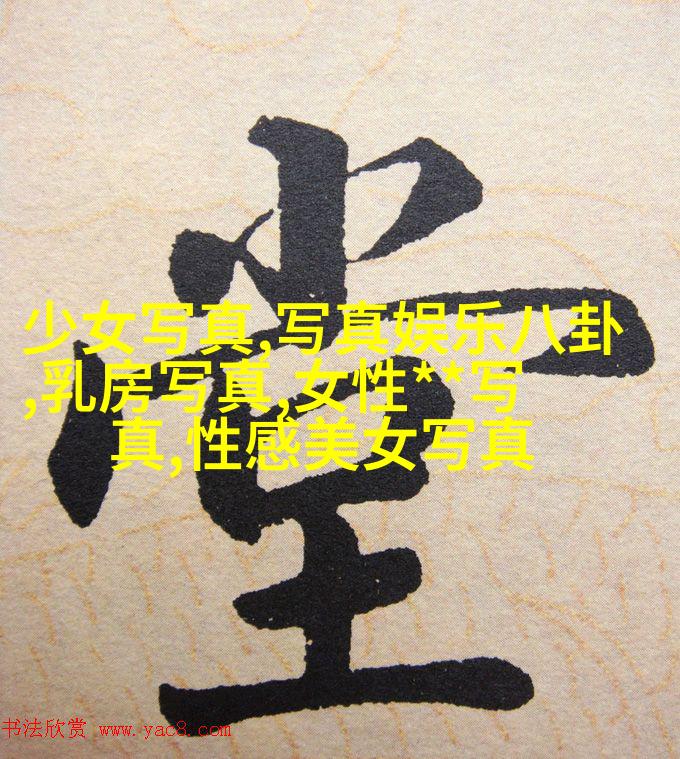 堂
少女写真,写真娱乐八卦
,乳房写真,女性**写
真,性感美女写真
书法欣赏 www.yac8.com